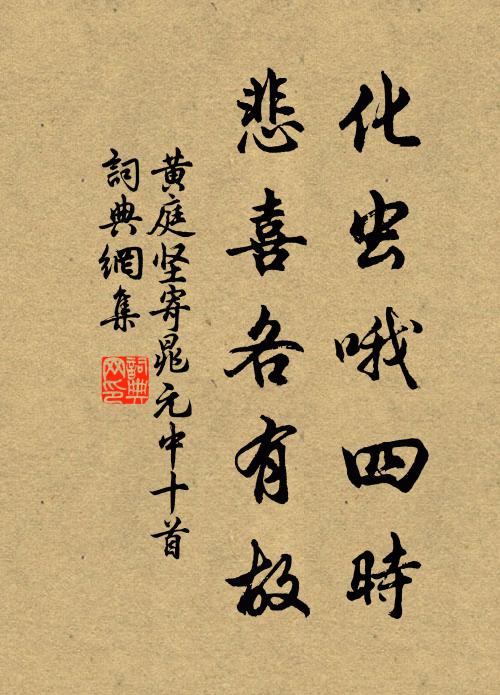 化虫哦四時
悲喜各有故
黄庭坚寄晁元中十首
詞典網集
詞典网印